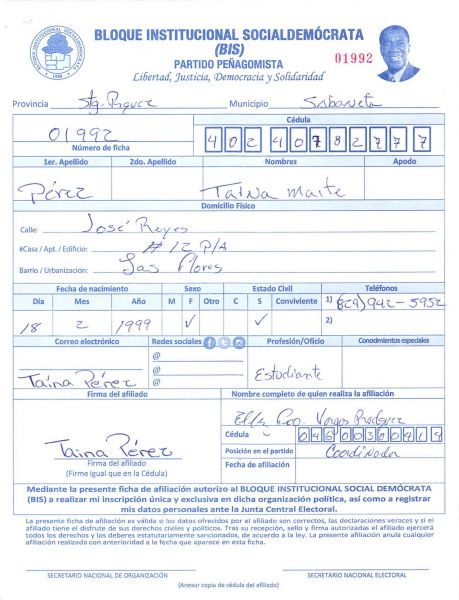 BLOQUE INSTITUCIONAL SOCIALDEMÓCRATA
(BIS)
PARTIDO PEÑAGOMISTA
01992
Libertad, Justicia, Democracia y Solidaridad
Provincia Stg. Rguez Municipio Sabaneta
Cédula
01992
Número de ficha
1er. Apellido 2do. Apellido Nombres Apodo
Pérez Taina Maite
Domicilio Físico
Calle: José Reyes
#Casa / Apt. / Edificio: # 12 P/A
Barrio / Urbanización: Las Flores
Fecha de nacimiento Sexo Estado Civil Teléfonos
Día Mes Año M F Otro C S Conviviente 1) (829) 942-5952
18 2 1999 ✓ ✓ 2)
Correo electrónico Redes sociales Profesión/Oficio Conocimientos especiales
@
@
@
Taina Pérez Estudiante
Firma del afiliado Nombre completo de quien realiza la afiliación
Vargas Rodríguez
Cédula
Taina Pérez Posición en el partido Coordinador
Firma del afiliado Fecha de afiliación
(Firme igual que en la Cédula)
Mediante la presente ficha de afiliación autorizo al BLOQUE INSTITUCIONAL SOCIAL DEMÓCRATA
(BIS) a realizar mi inscripción única y exclusiva en dicha organización política, así como a registrar
mis datos personales ante la Junta Central Electoral.
La presente ficha de afiliación es válida si los datos ofrecidos por el afiliado son correctos, las declaraciones veraces y si el
afiliado tiene el disfrute de sus derechos civiles y políticos. Tras su recepción, sello y firma autorizadas el afiliado ejercerá
todos los derechos y los deberes estatutariamente sancionados, de acuerdo a la ley. La presente afiliación anula cualquier
afiliación realizada con anterioridad a la fecha que aparece en esta ficha.
SECRETARIO NACIONAL DE ORGANIZACIÓN SECRETARIO NACIONAL ELECTORAL
(Anexar copia de cédula del afiliado)